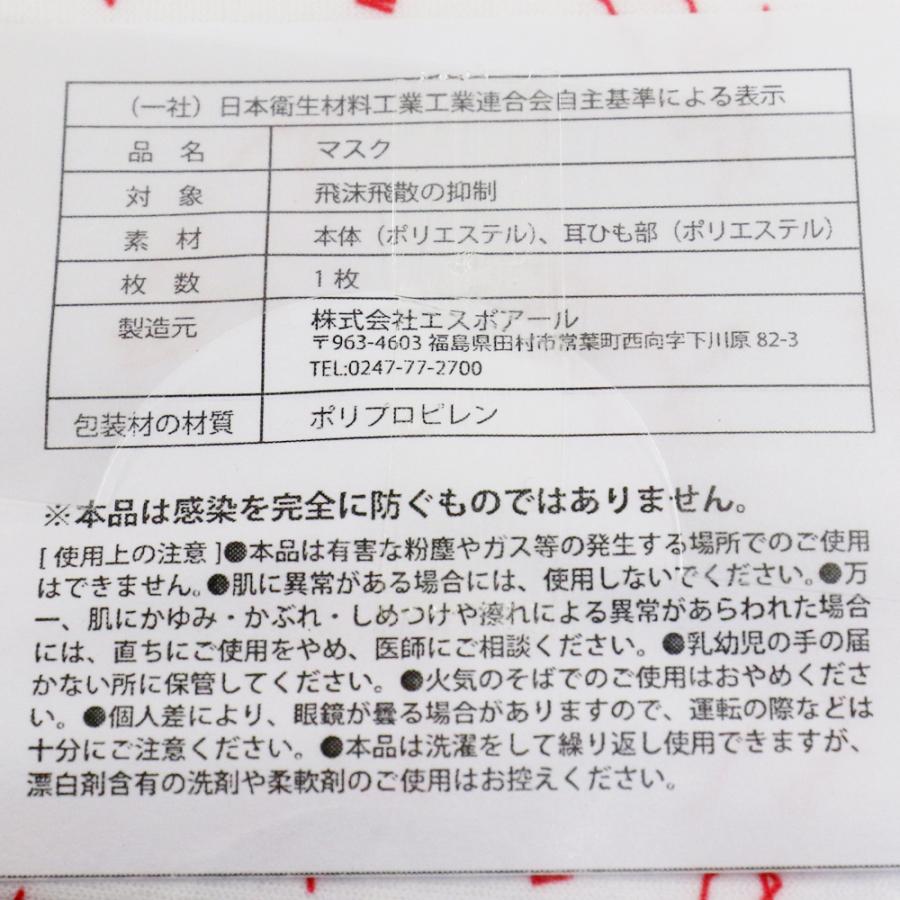 （一社）日本衛生材料工業工業連合会自主基準による表示
品 名 マスク
対 象 飛沫飛散の抑制
素 材 本体（ポリエステル）、耳ひも部（ポリエステル）
枚 数 1枚
製造元 株式会社エスポアール
〒963-4603 福島県田村市常葉町西向字下川原 82-3
TEL:0247-77-2700
包装材の材質 ポリプロピレン
※本品は感染を完全に防ぐものではありません。
[ 使用上の注意 ]●本品は有害な粉塵やガス等の発生する場所でのご使用
はできません。●肌に異常がある場合には、使用しないでください。●万
一、肌にかゆみ・かぶれ・しめつけや擦れによる異常があらわれた場合
には、直ちにご使用をやめ、医師にご相談ください。●乳幼児の手の届
かない所に保管してください。●火気のそばでのご使用はおやめくださ
い。●個人差により、眼鏡が曇る場合がありますので、運転の際などは
十分にご注意ください。●本品は洗濯をして繰り返し使用できますが、
漂白剤含有の洗剤や柔軟剤のご使用はお控えください。